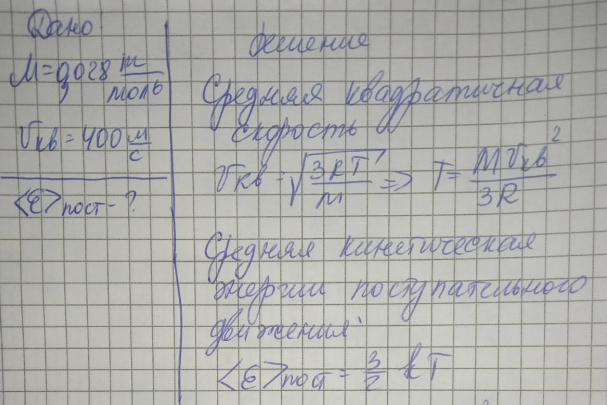 Дано
M=0,028 m/моль
Vкв = 400 м/с
<ε>пост - ?
Решение
Средняя квадратичная
скорость
Vкв = √(3RT/M) => T = MVкв²/3R
Средняя кинетическая
энергии поступательного
движения:
<ε>пост = 3/2 kT